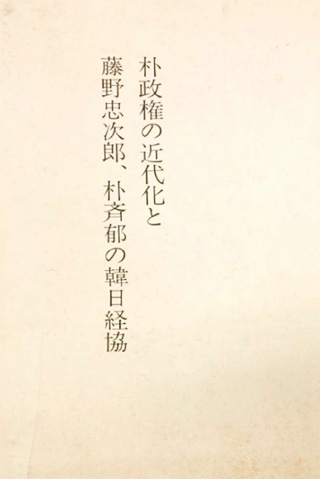 朴政権の近代化と
藤野忠次郎、朴斉郁の韓日経協